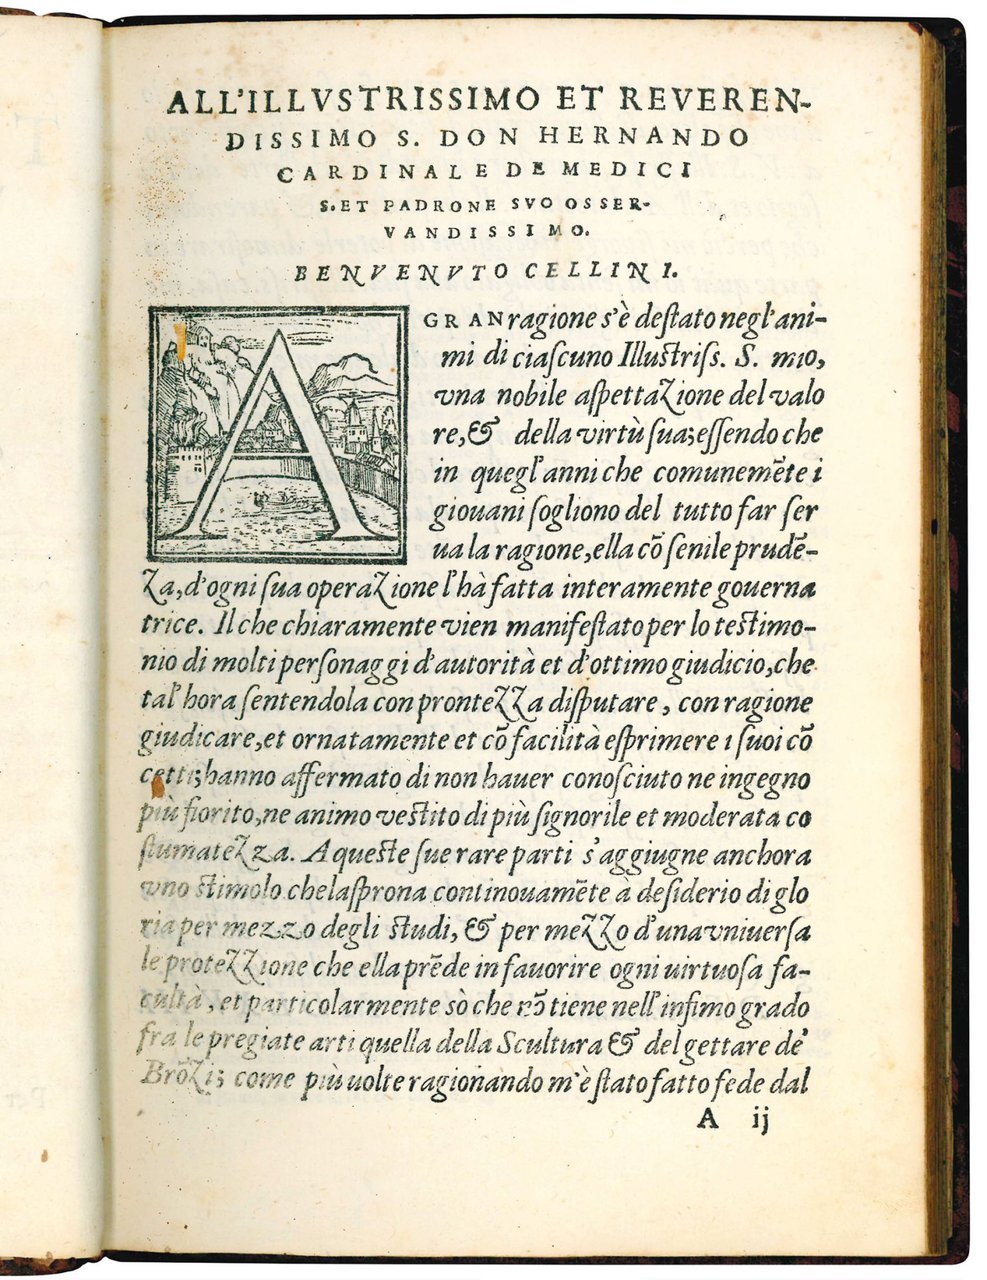 ALL'ILLVSTRISSIMO ET REVEREN-
DISSIMO S. DON HERNANDO
CARDINALE DE MEDICI
S. ET PADRONE SVO OSSER-
VANDISSIMO.
BENVENVTO CELLINI.
A GRAN ragione s'è deſtato negl'ani-
mi di ciaſcuno Illuſtriſſ. S. mio,
vna nobile aſpettaZione del valo
re, & della virtù ſua; eſſendo che
in quegl'anni che comunemẽte i
giouani ſogliono del tutto far ſer
ua la ragione, ella cõ ſenile prudẽ-
Za, d'ogni ſua operaZione l'hà fatta interamente gouerna
trice. Il che chiaramente vien manifeſtato per lo teſtimo-
nio di molti perſonaggi d'autorità et d'ottimo giudicio, che
tal'hora ſentendola con pronteZZa diſputare, con ragione
giudicare, et ornatamente et cõ facilità eſprimere i ſuoi cõ
cetti; hanno affermato di non hauer conoſciuto ne ingegno
più fiorito, ne animo veſtito di più ſignorile et moderata co
ſtumateZza. A queſte ſue rare parti s'aggiugne anchora
vno ſtimolo che laſprona continouamẽte à deſiderio di glo
ria per mezzo degli ſtudi, & per meZZo d'una vniuerſa
le proteZZione che ella prẽde in fauorire ogni uirtuoſa fa-
cultà, et particolarmente sò che nõ tiene nell'infimo grado
fra le pregiate arti quella della Scultura & del gettare de'
BrõZi; come più uolte ragionando m'è ſtato fatto fede dal
A ij